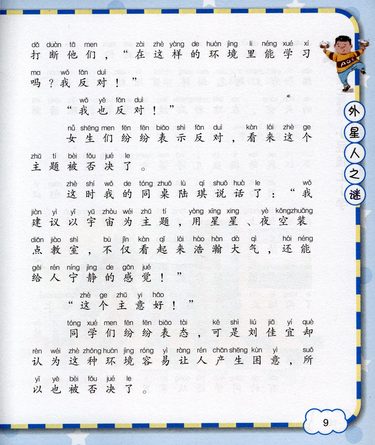 dǎ duàn tā men zài zhè yàng de huán jìng lǐ néng xué xí
打断他们，“在这样的环境里能学习
ma wǒ fǎn duì
吗？我反对！”
wǒ yě fǎn duì
“我也反对！”
nǚ shēng men fēn fēn biǎo shì fǎn duì kàn lái zhè ge
女生们纷纷表示反对，看来这个
zhǔ tí bèi fǒu jué le
主题被否决了。
zhè shí wǒ de tóng zhuō lù qí shuō huà le wǒ
这时我的同桌陆琪说话了：“我
jiàn yì yǐ yǔ zhòu wéi zhǔ tí yòng xīng xing yè kōng zhuāng
建议以宇宙为主题，用星星、夜空装
diǎn jiào shì bù jǐn kàn qǐ lái hào hàn dà qì hái néng
点教室，不仅看起来浩瀚大气，还能
gěi rén níng jìng de gǎn jué
给人宁静的感觉！”
zhè ge zhǔ yi hǎo
“这个主意好！”
tóng xué men fēn fēn biǎo tài kě shì liú jiā yí què
同学们纷纷表态，可是刘佳宜却
rèn wéi zhè zhǒng huán jìng róng yì ràng rén chǎn shēng kùn yì suǒ
认为这种环境容易让人产生困意，所
yǐ yě bèi fǒu jué le
以也被否决了。
外星人之谜
9